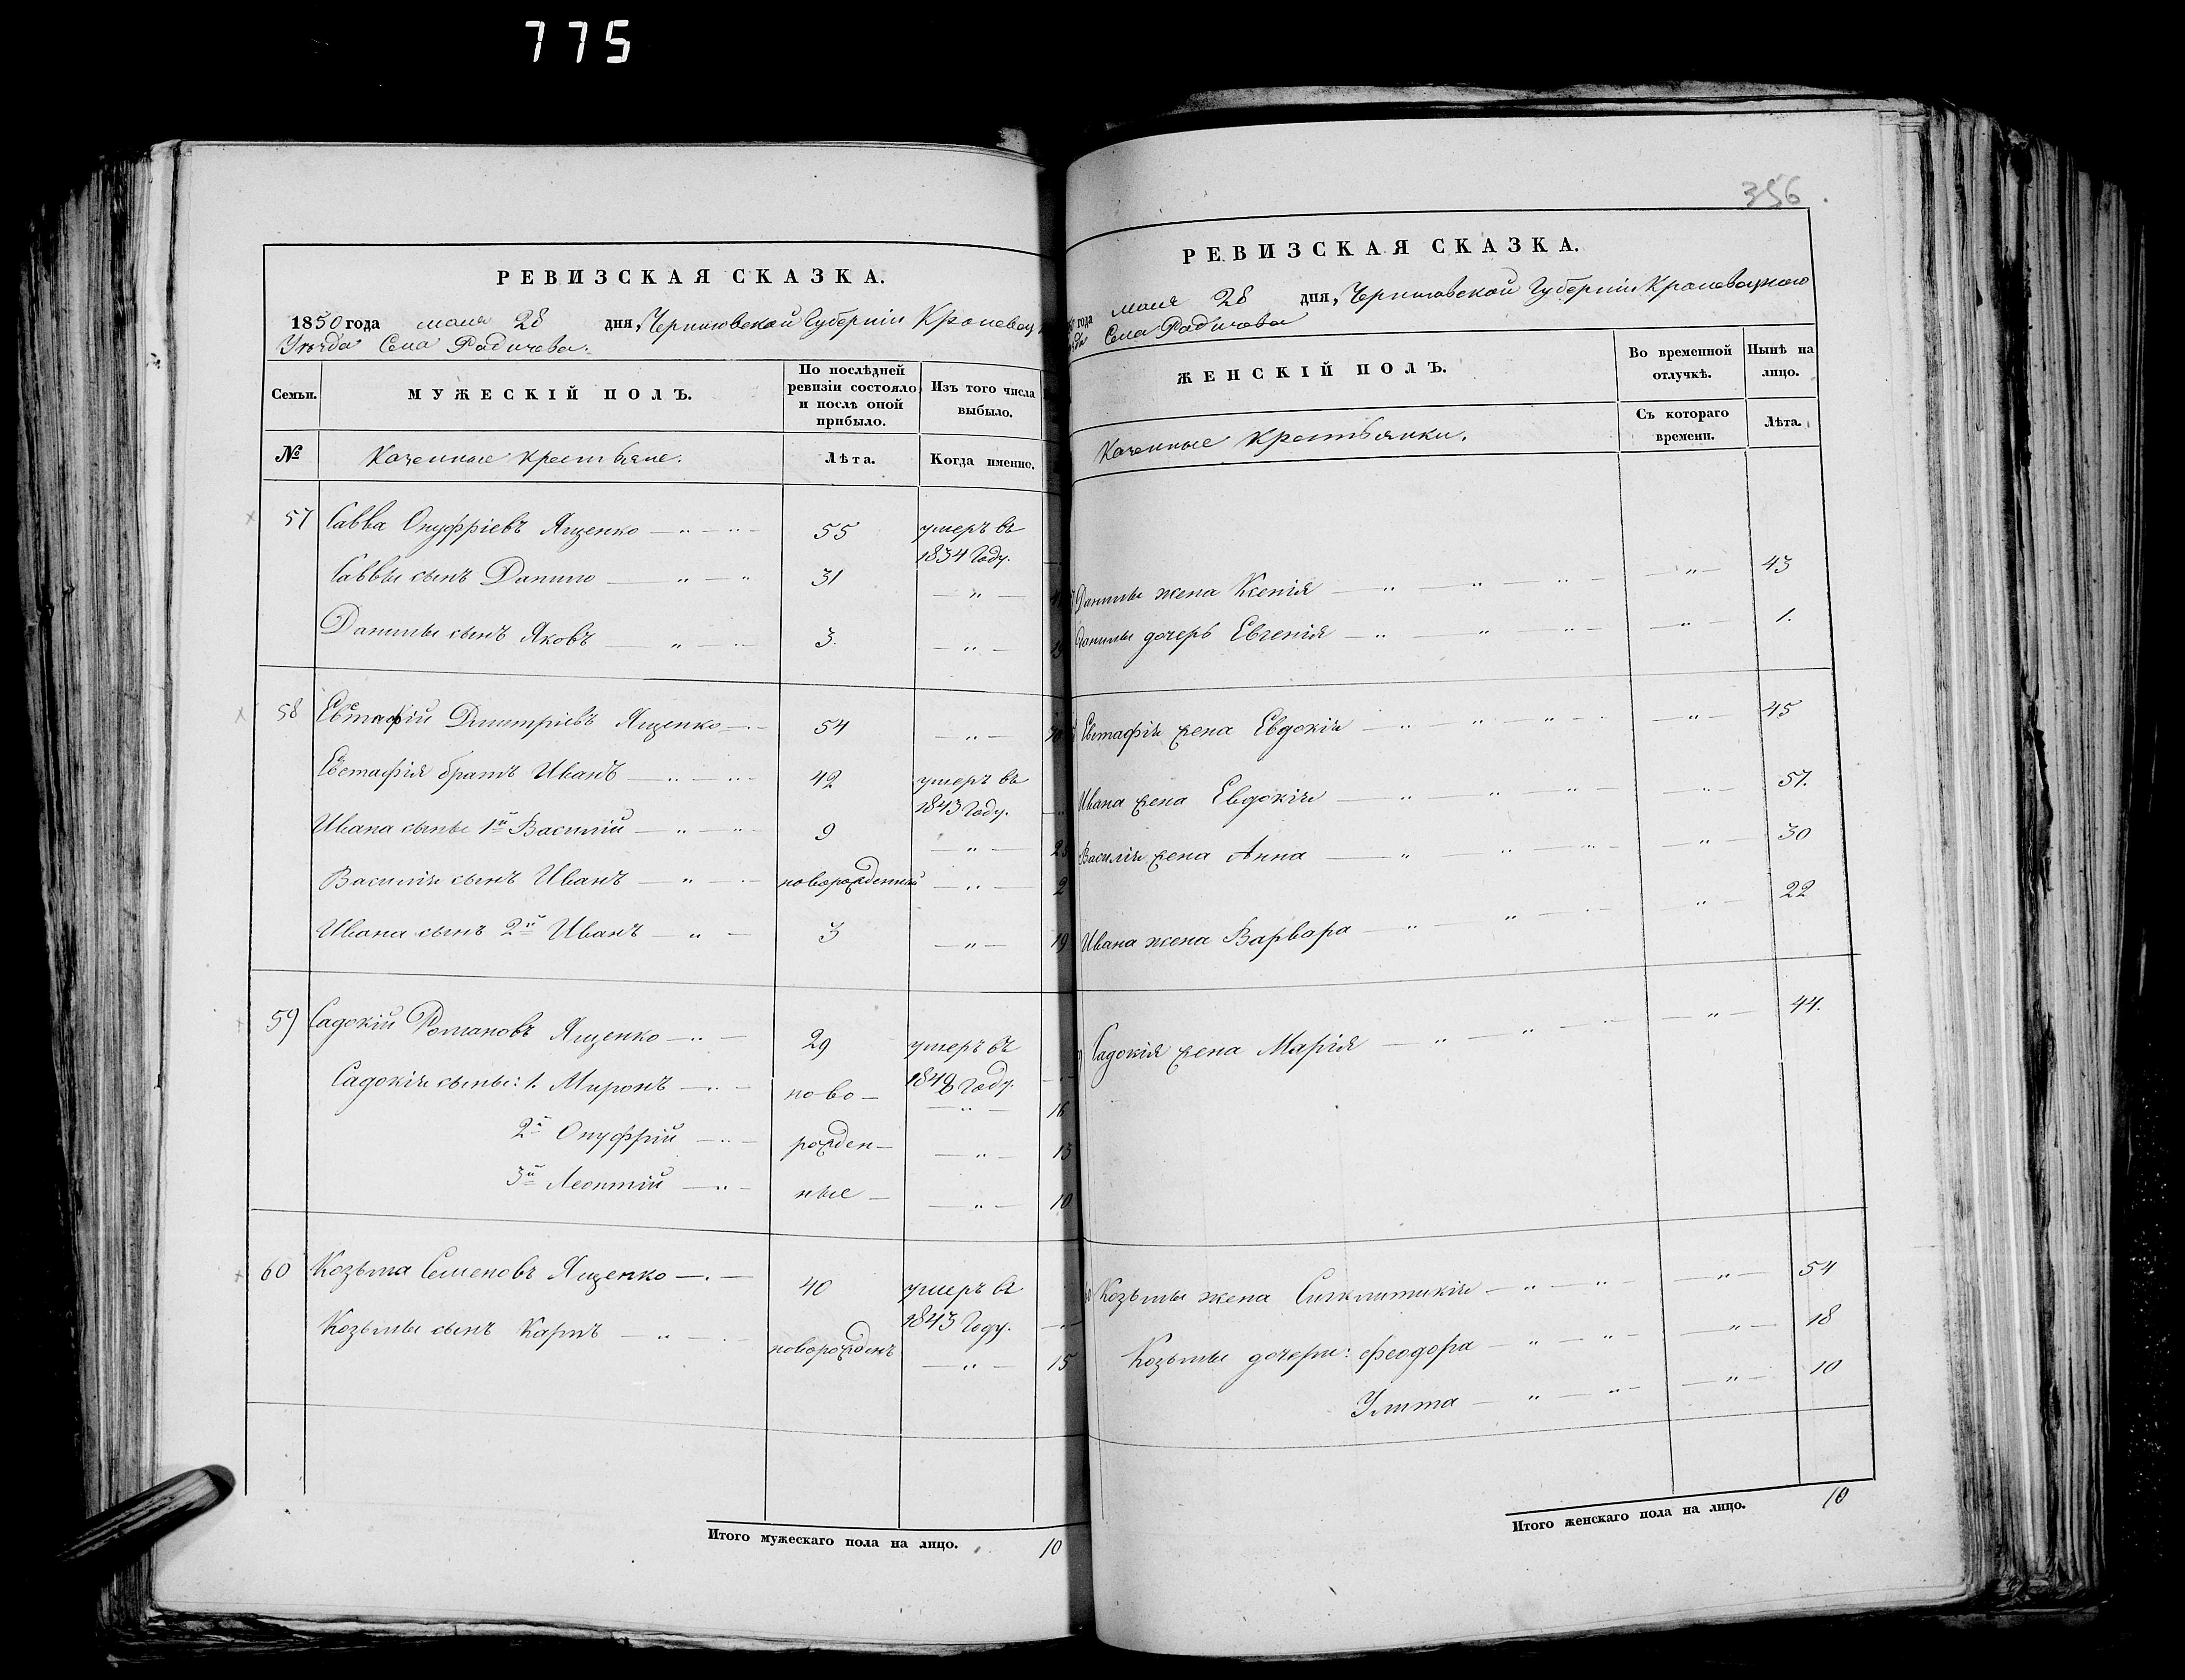 775
РЕВИЗСКАЯ СКАЗКА.
1850 года маія 28 дня, Черниговской Губерніи Кролевец
Уѣзда Села Радичева.
Семьи.
МУЖЕСКІЙ ПОЛЪ.
По послѣдней ревизіи состояло и послѣ оной прибыло.
Изъ того числа выбыло.
№
Казенные крестьяне.
Лѣта.
Когда именно.
57 Савва Онуфріевъ Ященко — 55 умеръ въ
1834 Году.
Саввы сынъ Данило — 31 — " —
Данилы сынъ Яковъ — 3. — " — 19
58 Евстафій Дмитріевъ Ященко — 54 — " —
Евстафія братъ Иванъ — 42 умеръ въ
1843 Году.
Ивана сыны 1й Василій — 9 — " —
Василія сынъ Иванъ — новорожденный — " — 2
Ивана сынъ 2й Иванъ — 3 — " — 19
59 Садокій Романовъ Ященко — 29 умеръ въ
1848 Году.
Садокія сыны: 1. Миронъ — ново— — " — 16
2й Онуфрій — рожден— — " — 13
3й Леонтій — ные — — " — 10
60 Козьма Семеновъ Ященко — 40 умеръ въ
1843 Году.
Козьмы сынъ Карпъ — новорожденъ — " — 15
Итого мужескаго пола на лицо. 10
356.
РЕВИЗСКАЯ СКАЗКА.
года маія 28 дня, Черниговской Губерніи Кролевецкого
Села Радичева
ЖЕНСКІЙ ПОЛЪ.
Во временной отлучкѣ.
Нынѣ на лицо.
Казенные крестьянки.
Съ котораго времени.
Лѣта.
Данилы жена Ксенія — " — 43
Данилы дочерь Евгенія — " — 1.
Евстафія жена Евдокія — " — 45
Ивана жена Евдокія — " — 57.
Василія жена Анна — " — 30
Ивана жена Варвара — " — 22
Садокія жена Марія — " — 44.
Козьмы жена Сикклитикія — " — 54
Козьмы дочери: Феодора — " — 18
Улита — " — 10
Итого женскаго пола на лицо. 10